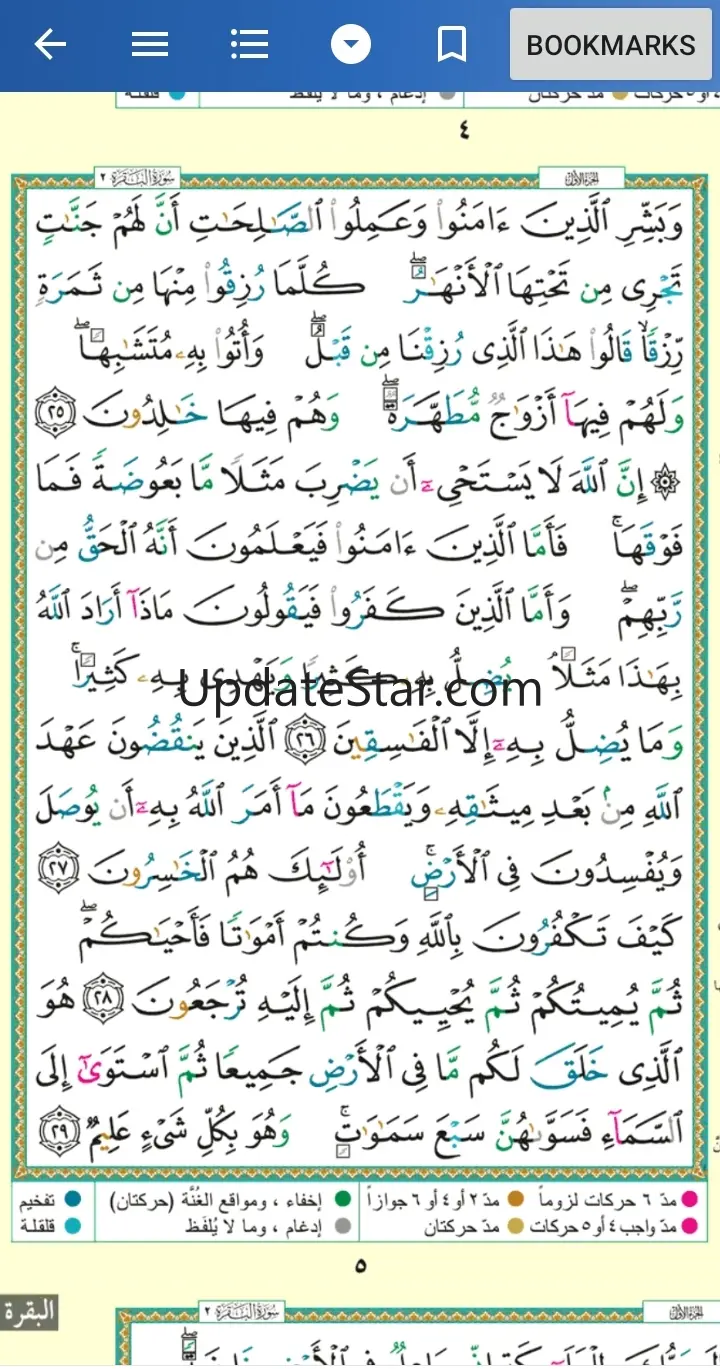 BOOKMARKS
٤
سُورَةُ البَقَرَة ٢
الجزء الأول
وَبَشِّرِ ٱلَّذِينَ ءَامَنُوا۟ وَعَمِلُوا۟ ٱلصَّـٰلِحَـٰتِ أَنَّ لَهُمْ جَنَّـٰتٍ
تَجْرِى مِن تَحْتِهَا ٱلْأَنْهَـٰرُ ۖ كُلَّمَا رُزِقُوا۟ مِنْهَا مِن ثَمَرَةٍ
رِّزْقًا ۙ قَالُوا۟ هَـٰذَا ٱلَّذِى رُزِقْنَا مِن قَبْلُ ۖ وَأُتُوا۟ بِهِۦ مُتَشَـٰبِهًا ۖ
وَلَهُمْ فِيهَآ أَزْوَٰجٌ مُّطَهَّرَةٌ ۖ وَهُمْ فِيهَا خَـٰلِدُونَ ٢٥
۞ إِنَّ ٱللَّهَ لَا يَسْتَحْىِۦٓ أَن يَضْرِبَ مَثَلًا مَّا بَعُوضَةً فَمَا
فَوْقَهَا ۚ فَأَمَّا ٱلَّذِينَ ءَامَنُوا۟ فَيَعْلَمُونَ أَنَّهُ ٱلْحَقُّ مِن
رَّبِّهِمْ ۖ وَأَمَّا ٱلَّذِينَ كَفَرُوا۟ فَيَقُولُونَ مَاذَآ أَرَادَ ٱللَّهُ
بِهَـٰذَا مَثَلًا ۘ يُضِلُّ بِهِۦ كَثِيرًا وَيَهْدِى بِهِۦ كَثِيرًا ۚ
UpdateStar.com
وَمَا يُضِلُّ بِهِۦٓ إِلَّا ٱلْفَـٰسِقِينَ ٢٦ ٱلَّذِينَ يَنقُضُونَ عَهْدَ
ٱللَّهِ مِنۢ بَعْدِ مِيثَـٰقِهِۦ وَيَقْطَعُونَ مَآ أَمَرَ ٱللَّهُ بِهِۦٓ أَن يُوصَلَ
وَيُفْسِدُونَ فِى ٱلْأَرْضِ ۚ أُو۟لَـٰٓئِكَ هُمُ ٱلْخَـٰسِرُونَ ٢٧
كَيْفَ تَكْفُرُونَ بِٱللَّهِ وَكُنتُمْ أَمْوَٰتًا فَأَحْيَـٰكُمْ ۖ
ثُمَّ يُمِيتُكُمْ ثُمَّ يُحْيِيكُمْ ثُمَّ إِلَيْهِ تُرْجَعُونَ ٢٨ هُوَ
ٱلَّذِى خَلَقَ لَكُم مَّا فِى ٱلْأَرْضِ جَمِيعًا ثُمَّ ٱسْتَوَىٰٓ إِلَى
ٱلسَّمَآءِ فَسَوَّىٰهُنَّ سَبْعَ سَمَـٰوَٰتٍ ۚ وَهُوَ بِكُلِّ شَىْءٍ عَلِيمٌ ٢٩
مدّ ٦ حركات لزوماً مدّ ٢ أو ٤ أو ٦ جوازاً إخفاء ، ومواقع الغُنَّة (حركتان) تفخيم
مدّ واجب ٤ أو ٥ حركات مدّ حركتان إدغام ، وما لا يُلفَظ قلقلة
٥
البقرة
سُورَةُ البَقَرَة ٢
الجزء الأول